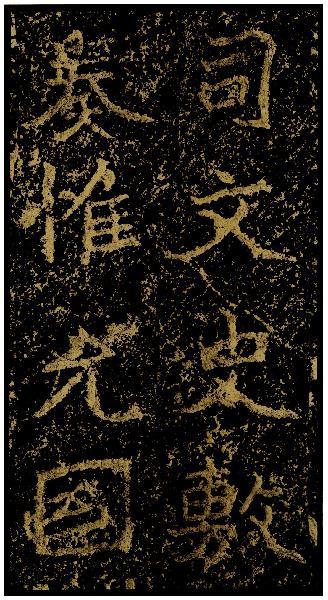 司文史敷
奏惟允